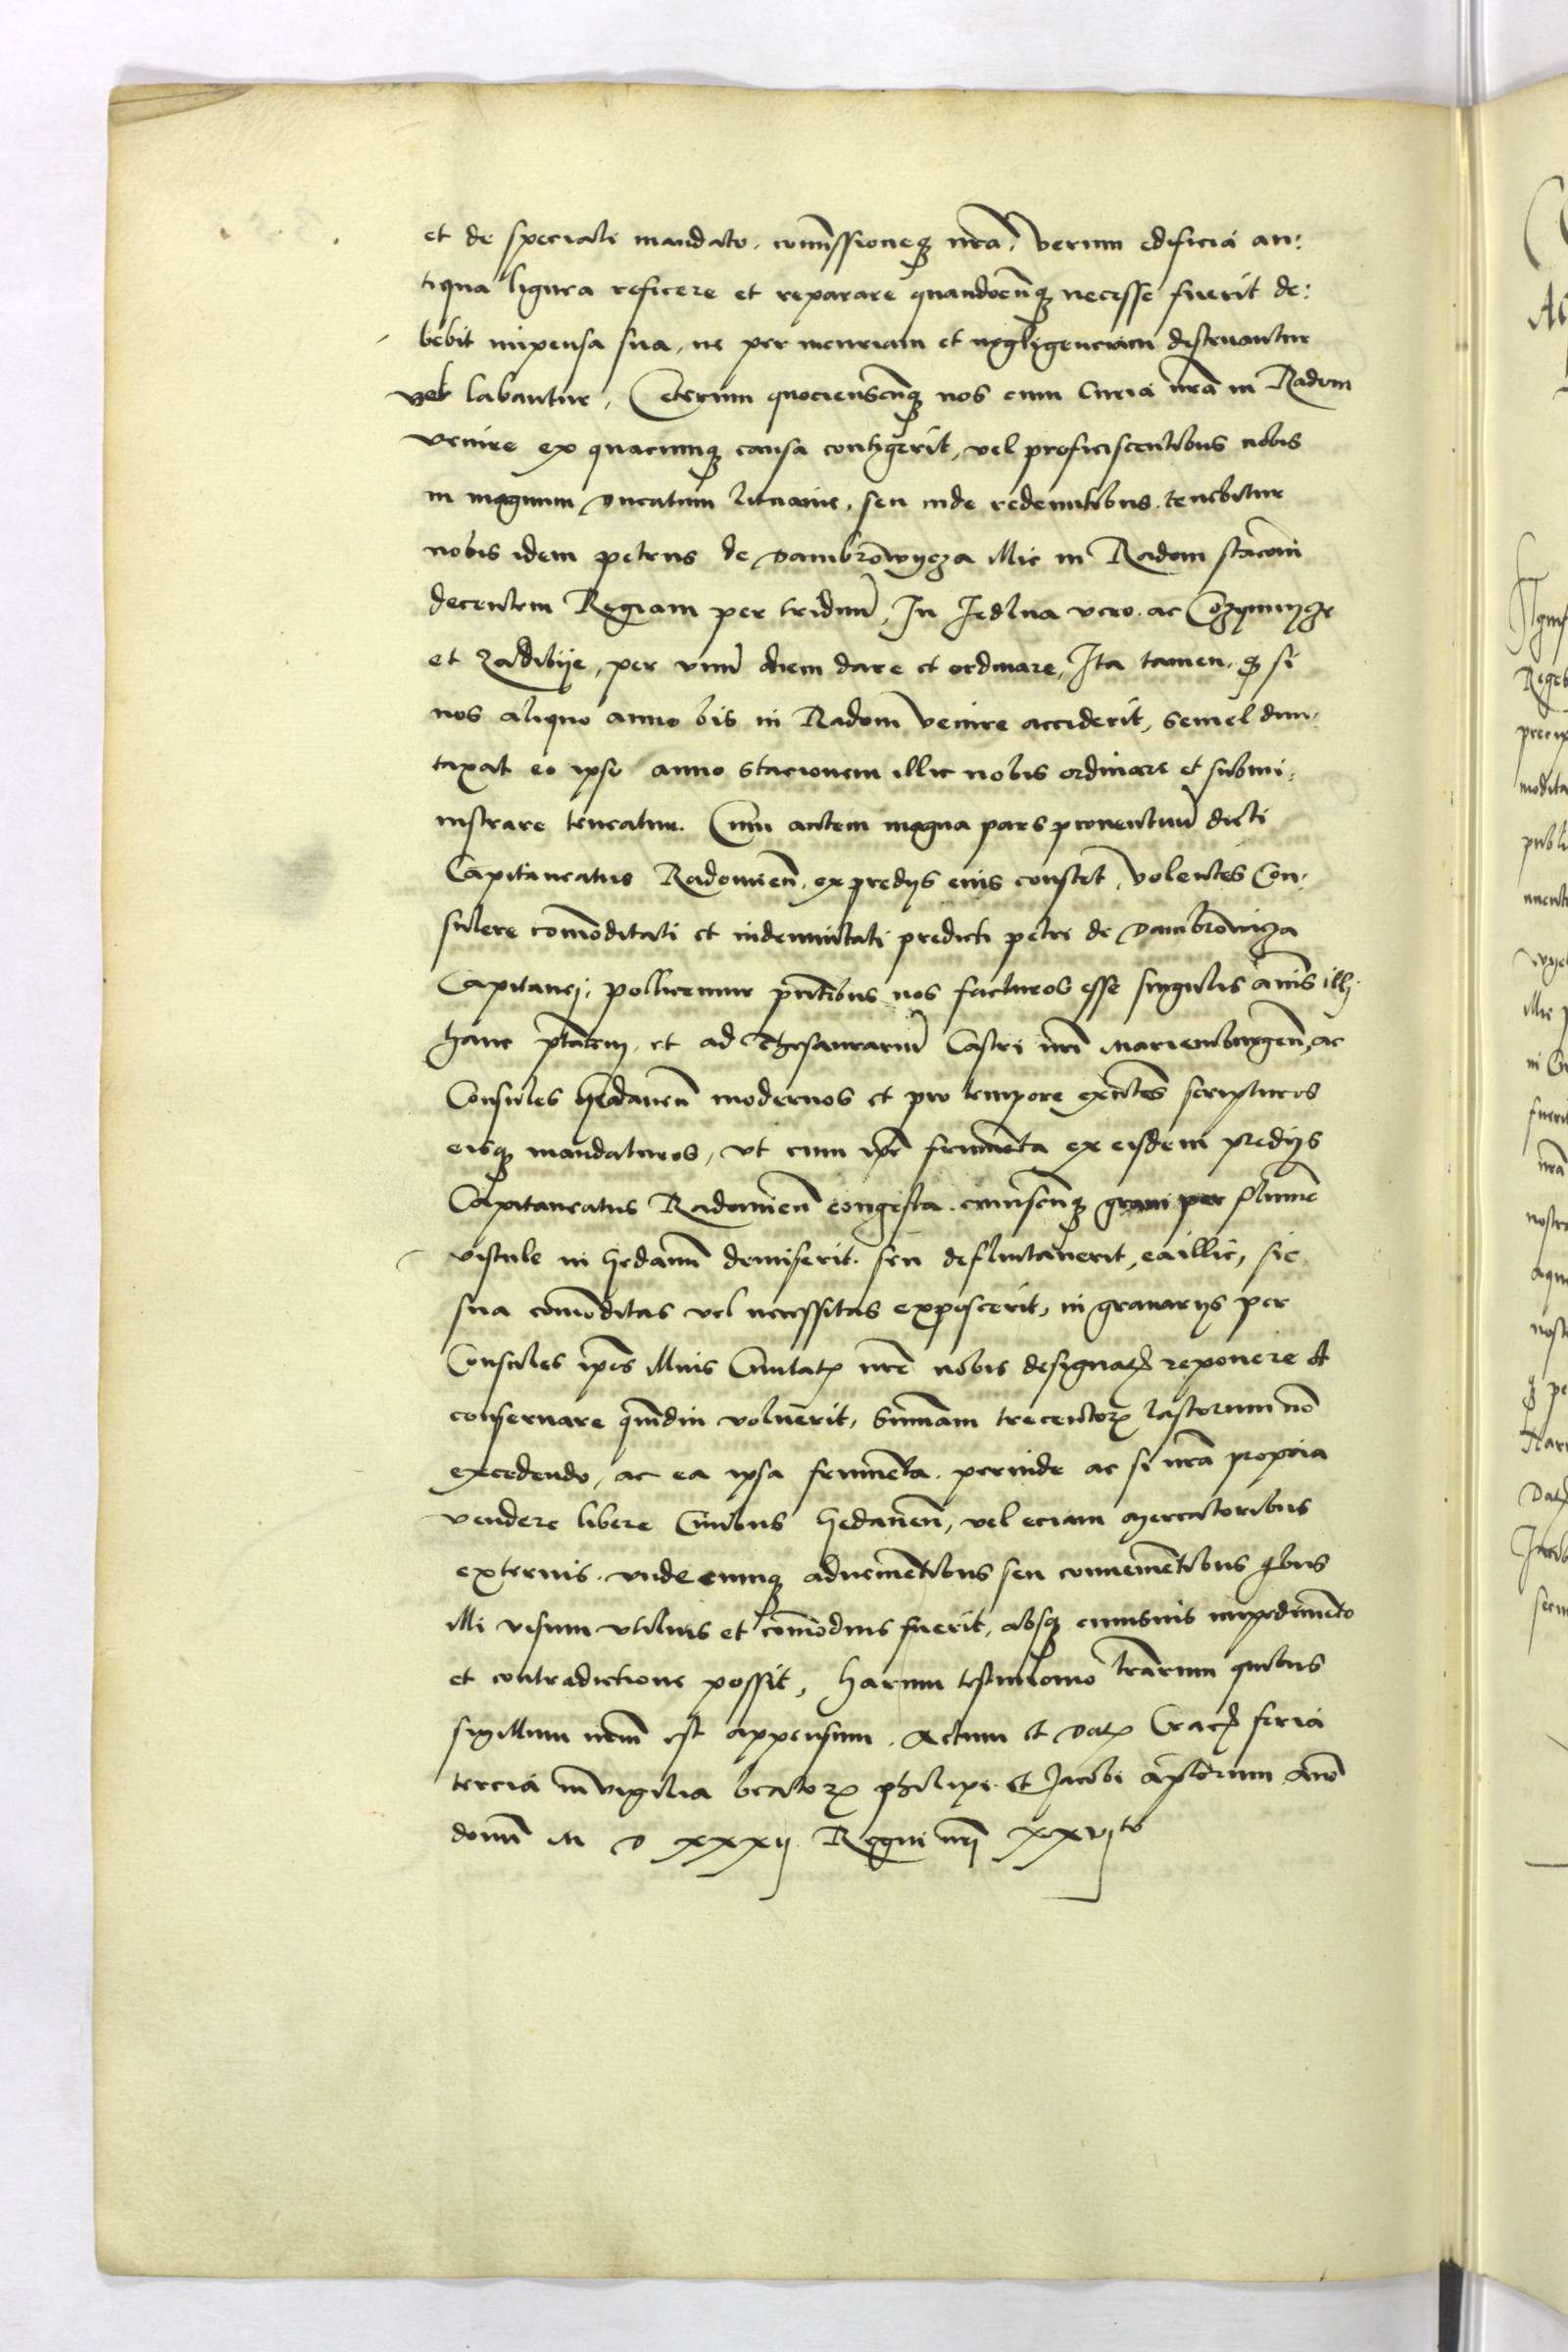 et de speciali mandato, comissioneq3 nra, verum edificia an:
tiqua lignea reficere et reparare quandocunq3 necesse fuerit de:
bebit impensa sua, ne per incuriam et negligenciam destruantur
vel labantur, Ceterum quocienscunq3 nos cum Curia nra in Radom
venire ex quacunq3 causa contigerit, vel proficiscentibus nobis
in magnum ducatum lituanie, seu inde redeuntibus, tenebitur
nobis idem petrus de dambrowycza illic in Radom staconi
decentem Regiam per triduu, In Jedlna vero ac Cozyenycze
et Zadibije, per unu diem dare et ordinare, Ita tamen, q3 si
nos aliquo anno bis in Radom venire acciderit, semel dun:
taxat eo ipso anno stacionem illic nobis ordinare et submi:
nistrare teneatur. Cum autem magna pars proventuu dicti
Capitaneatus Radomien, ex predijs eius constet, volentes Con:
sulere comoditati et indemnitati predicti petri de dambrowicza
Capitanej, pollicemur pntibus nos facturos esse singulis annis illj
hanc ptatem, et ad Thesaurariu Castri nri Marienburgen, ac
Consules Gedanen modernos et pro tempore exntes scripturos
eisq3 mandaturos, vt cum ipe frumenta ex eisdem predijs
Capitaneatus Radomien congesta cuiuscunq3 grani per flumen
vistule in Gedanum demiserit seu defluitaverit, ea illic, sic
sua comoditas vel necessitas exposcerit, in granarijs per
Consules ipos illius Civitatis nre nobis designatis reponere et
conservare qmdiu voluerit, Summam trecentorum lastorum no
excedendo, ac ea ipsa frumenta, perinde ac si nra propria
vendere libere Civibus Gedanen, vel eciam mercatoribus
externis, vndecumq3 advenientibus seu convenientibus qbus
illi visum vtilius et comodius fuerit, absq3 cuiusvis impedimento
et contradictione possit, harum testimonio lrarum quibus
sigillum nrum est appensum. Actum et dat Crac feria
tercia in vigilia beatorum philipi et Jacobi aplorum Anno
domi M D xxxij Regni nrj xxvjto